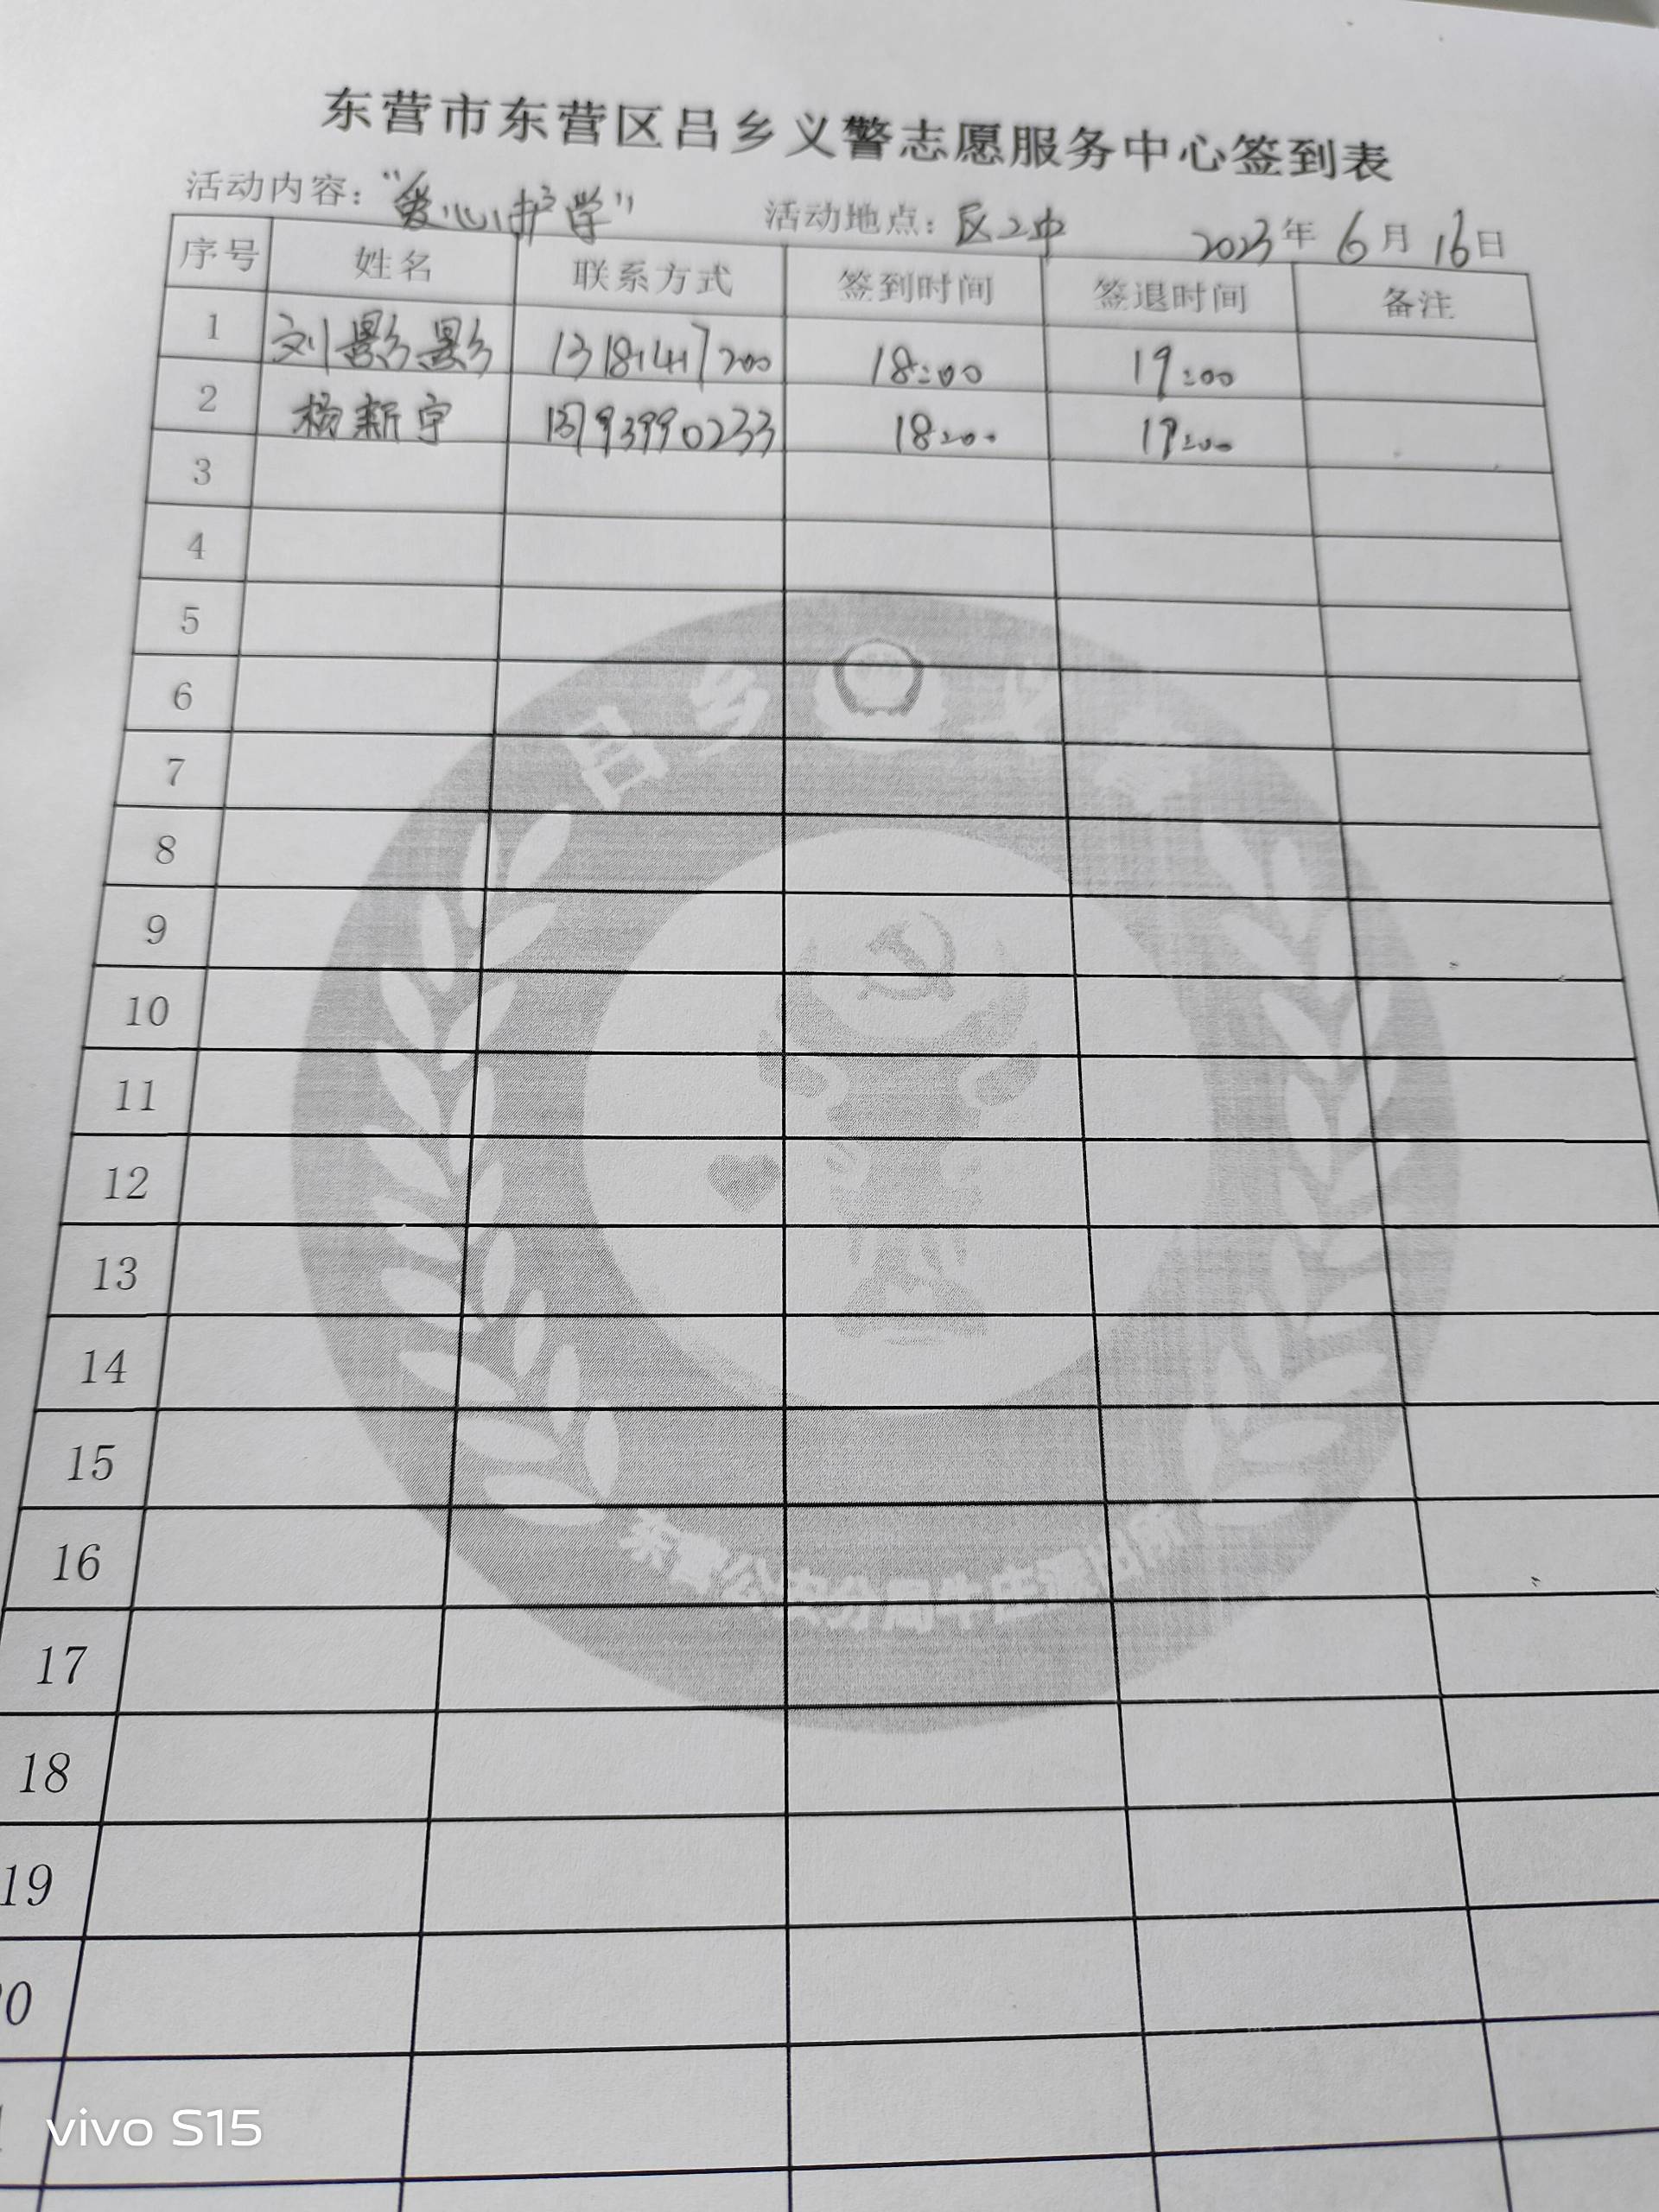 东营市东营区吕乡义警志愿服务中心签到表
活动内容：“爱心护学” 活动地点：区二中 2023年6月16日
序号 姓名 联系方式 签到时间 签退时间 备注
1 刘影影 13181417200 18:00 19:00
2 杨新宇 18:00 19:00
3
4
5
6
7
8
9
10
11
12
13
14
15
16
17
18
19
吕乡义警
东营公安分局牛庄派出所
vivo S15